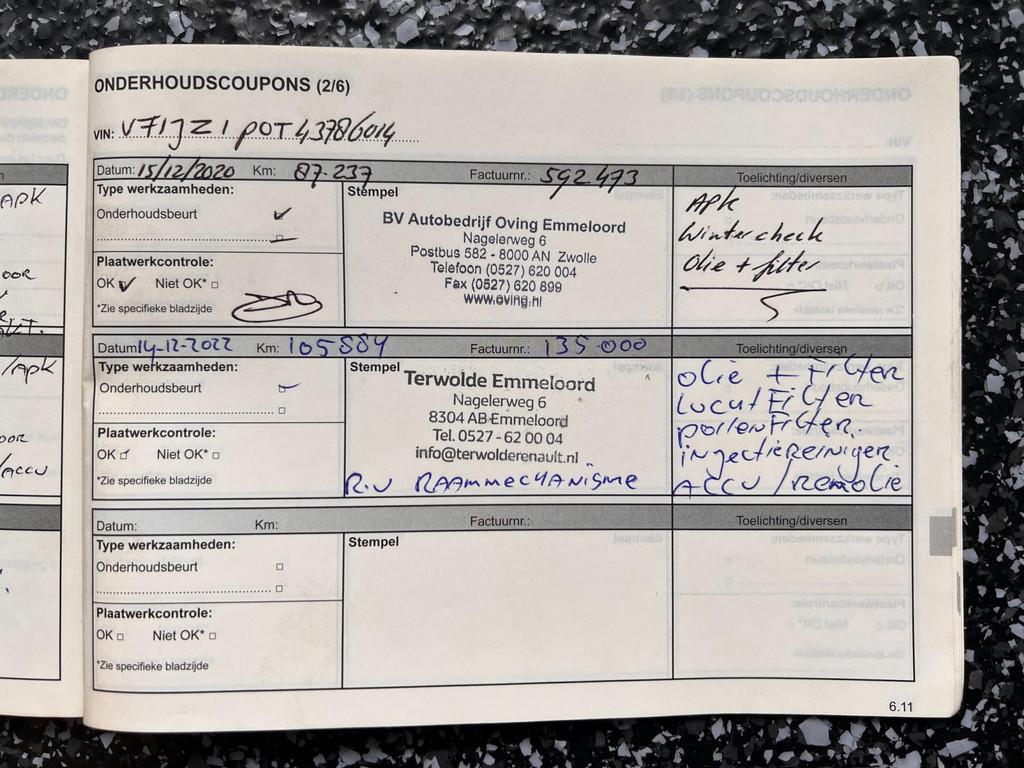 ONDERHOUDSCOUPONS (2/6)
VIN: VF1JZ1POT43786014
Datum: 15/12/2020 Km: 87.237 Factuurnr.: 592.473 Toelichting/diversen
Type werkzaamheden:
Onderhoudsbeurt
Plaatwerkcontrole:
OK Niet OK*
*Zie specifieke bladzijde
Stempel
BV Autobedrijf Oving Emmeloord
Nagelerweg 6
Postbus 582 - 8000 AN Zwolle
Telefoon (0527) 620 004
Fax (0527) 620 899
www.oving.nl
APK
Wintercheck
Olie + filter
Datum: 14-12-2022 Km: 105884 Factuurnr.: 135 000 Toelichting/diversen
Type werkzaamheden:
Onderhoudsbeurt
Plaatwerkcontrole:
OK Niet OK*
*Zie specifieke bladzijde
Stempel
Terwolde Emmeloord
Nagelerweg 6
8304 AB Emmeloord
Tel. 0527 - 62 00 04
info@terwolderenault.nl
R.V RAAMMECHANISME
OLIE + FILTER
LUCHTFILTER
POLLENFILTER.
INJECTIEREINIGER
ACCU / REMOLIE
Datum: Km: Factuurnr.: Toelichting/diversen
Type werkzaamheden:
Onderhoudsbeurt
Plaatwerkcontrole:
OK Niet OK*
*Zie specifieke bladzijde
Stempel
6.11
APK
/APK
/ACCU